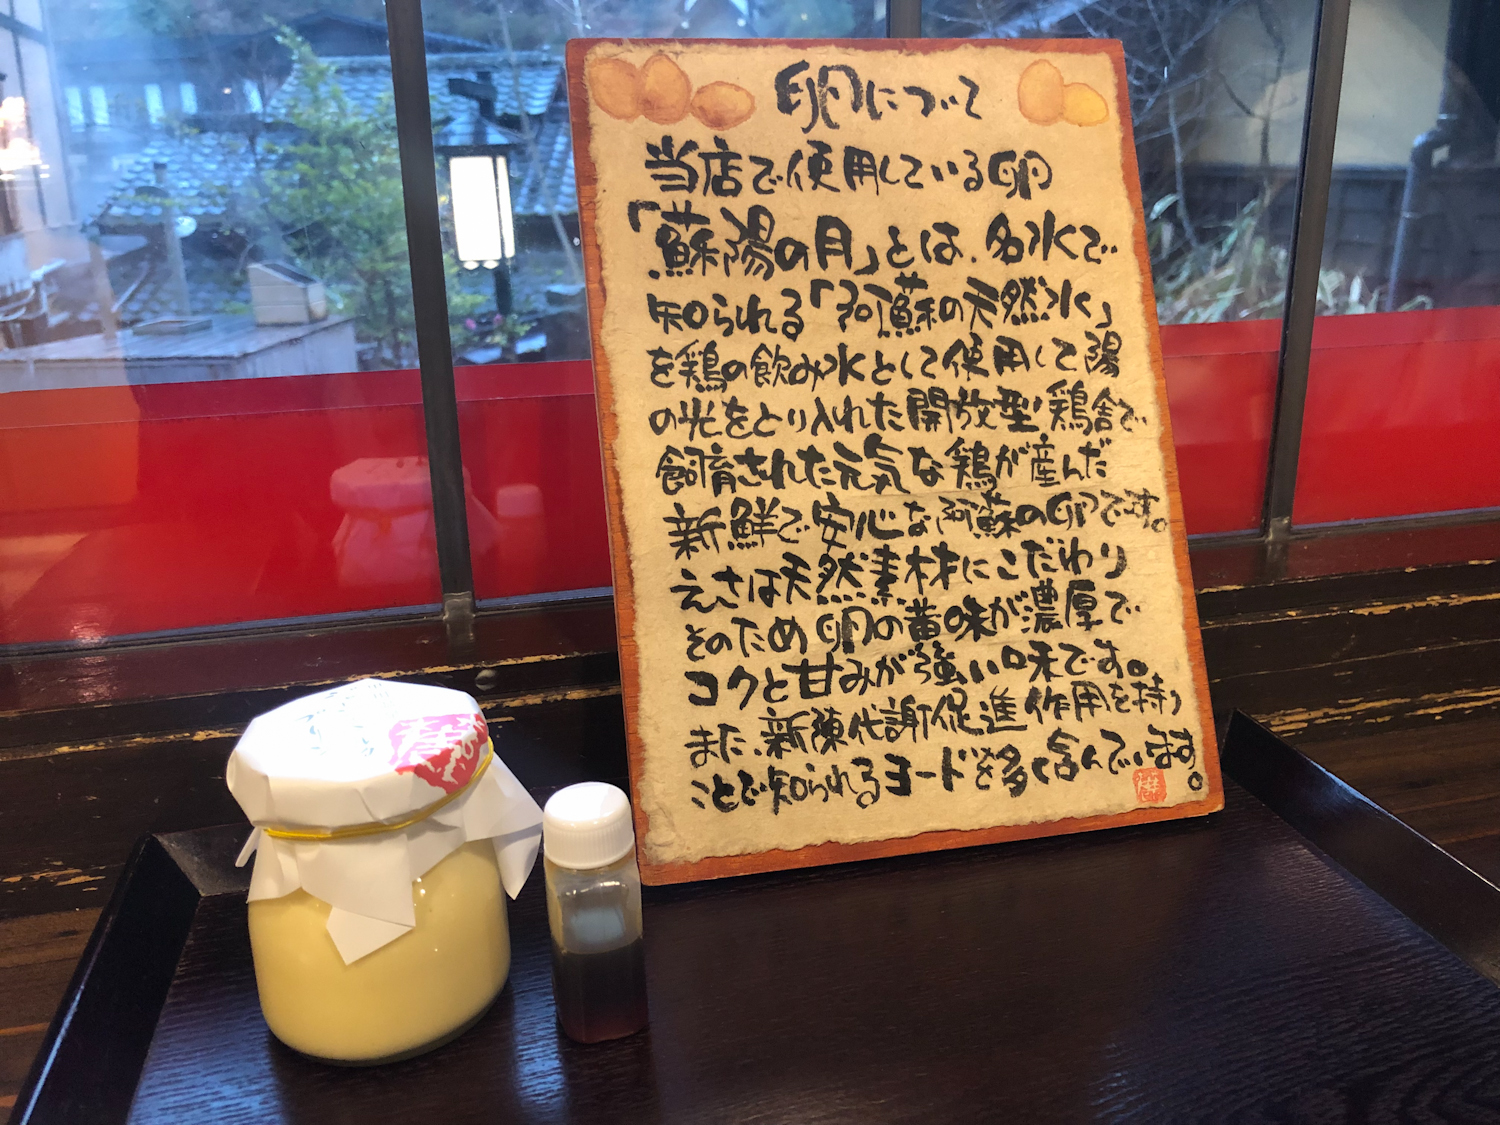 卵について
当店で使用している卵
「蘇陽の月」とは、名水で
知られる「阿蘇の天然水」
を鶏の飲み水として使用して陽
の光をとり入れた開放型鶏舎で
飼育された元気な鶏が産んだ
新鮮で安心な阿蘇の卵です。
えさは天然素材にこだわり
そのため卵の黄味が濃厚で
コクと甘みが強い味です。
また、新陳代謝促進作用を持つ
ことで知られるヨードを多く含んでいます。